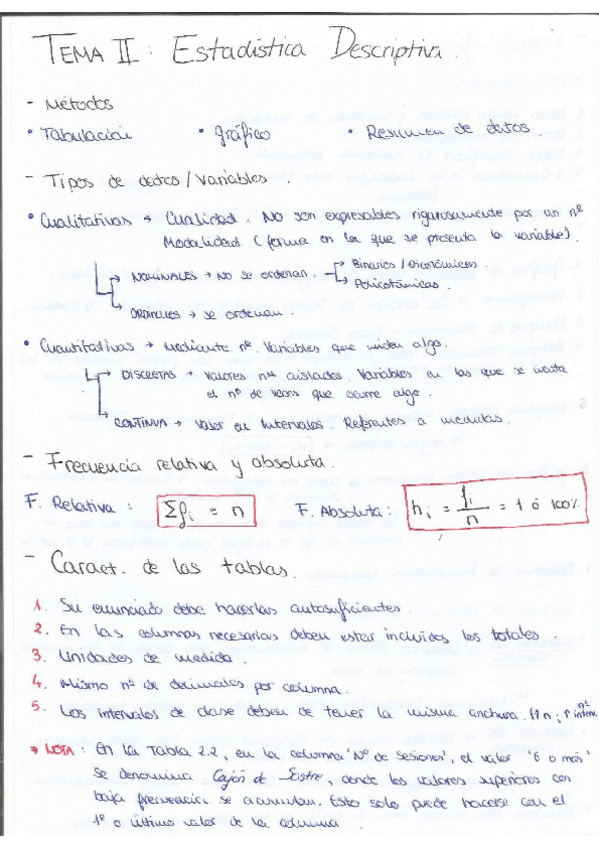 TEMA II : Estadística Descriptiva.
- Métodos
• Tabulación • gráfico • Resumen de datos.
- Tipos de datos / variables.
• Cualitativas → Cualidad. No son expresables rigurosamente por un nº
Modalidad (forma en la que se presenta la variable).
NOMINALES → No se ordenan. Binarios / Dicotómicas
Policotómicas.
ORDINALES → se ordenan.
• Cuantitativas → Mediante nº. Variables que miden algo.
DISCRETAS → valores aislados. Variables en las que se
el nº de veces que ocurre algo.
CONTINUA → valor en Intervalos. Referentes a medidas.
- Frecuencia relativa y absoluta.
F. Relativa : Σfi = n F. Absoluta : hi = fi/n = 1 ó 100%
- Caract. de las tablas.
1. Su enunciado debe hacerlas autosuficientes.
2. En las columnas necesarias deben estar incluidos los totales.
3. Unidades de medida.
4. Mismo nº de decimales por columna.
5. Los intervalos de clase deben de tener la misma anchura.
* NOTA : En la Tabla 2.2, en la columna 'Nº de Sesiones', el valor '6 o más'
se denomina Cajón de Sastre, donde los valores superiores con
baja frecuencia se acumulan. Esto solo puede hacerse con el
1º o último valor de la columna.